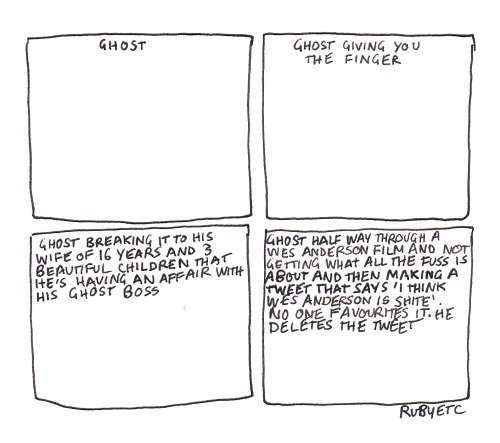 GHOST
GHOST GIVING YOU
THE FINGER
GHOST BREAKING IT TO HIS
WIFE OF 16 YEARS AND 3
BEAUTIFUL CHILDREN THAT
HE'S HAVING AN AFFAIR WITH
HIS GHOST BOSS
GHOST HALF WAY THROUGH A
WES ANDERSON FILM AND NOT
GETTING WHAT ALL THE FUSS IS
ABOUT AND THEN MAKING A
TWEET THAT SAYS 'I THINK
WES ANDERSON IS SHITE'.
NO ONE FAVOURITES IT. HE
DELETES THE TWEET
RUBYETC